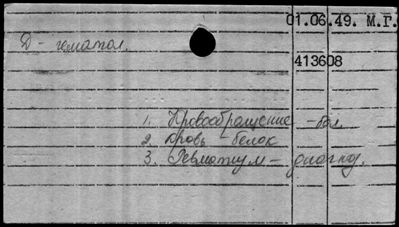 01.06.49. М.Г.
Д- гематол.
413608
1. Кровообращение -бол.
2. Кровь - белок
3. Ревматизм - диагноз.